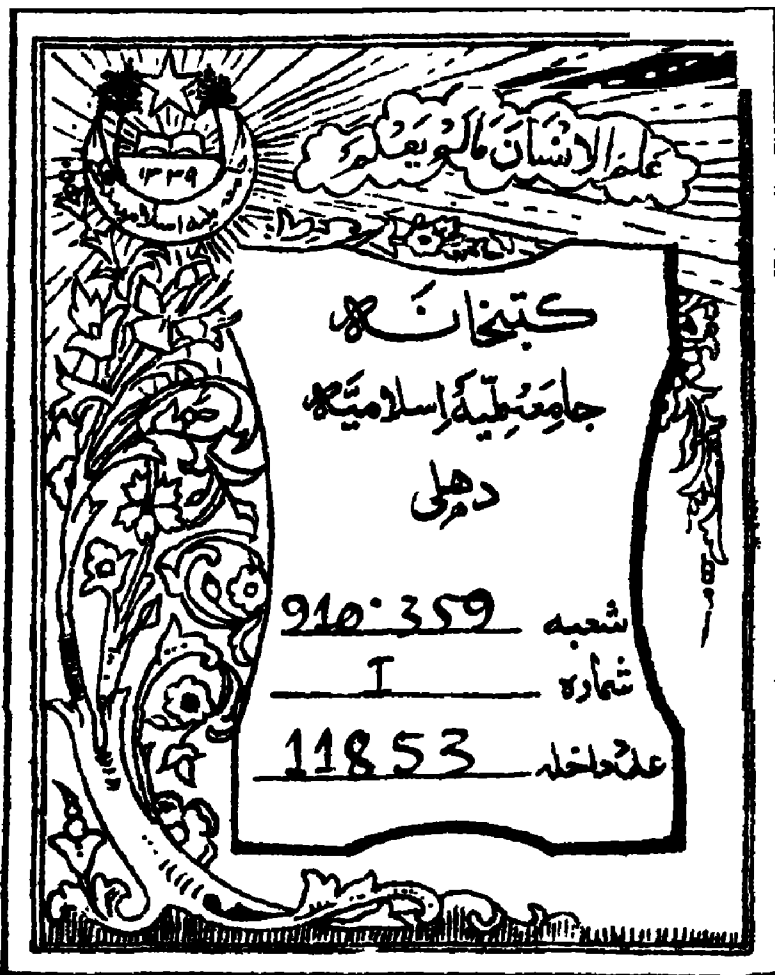 عَلَّمَ الْاِنْسَانَ مَالَمْ يَعْلَمْ
۱۳۳۹
کتبخانہ
جامعہ ملیہ اسلامیہ
دہلی
شعبہ 910.359
شمارہ I
عدد داخلہ 11853